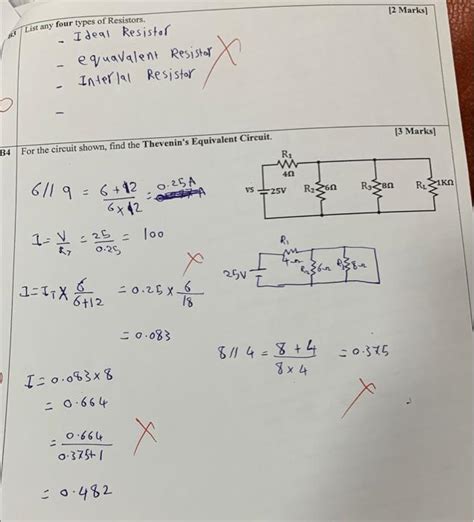 [2 Marks]
List any four types of Resistors.
- Ideal Resistor
- equavalent Resistor
- Interlal Resistor
-
B4 For the circuit shown, find the Thevenin's Equivalent Circuit. [3 Marks]
R₁
4Ω
VS 25V R₂ 6Ω R₃ 8Ω R_L 1KΩ
6//9 = 6+12 / 6x12 = 0.25A
I = V/R_T = 25/0.25 = 100
R₁
4Ω
25V R₂ 6Ω R₃ 8Ω
I = I_T x 6/6+12 = 0.25 x 6/18
= 0.083
8//4 = 8+4 / 8x4 = 0.375
I = 0.083x8
= 0.664
= 0.664 / 0.375+1
= 0.482